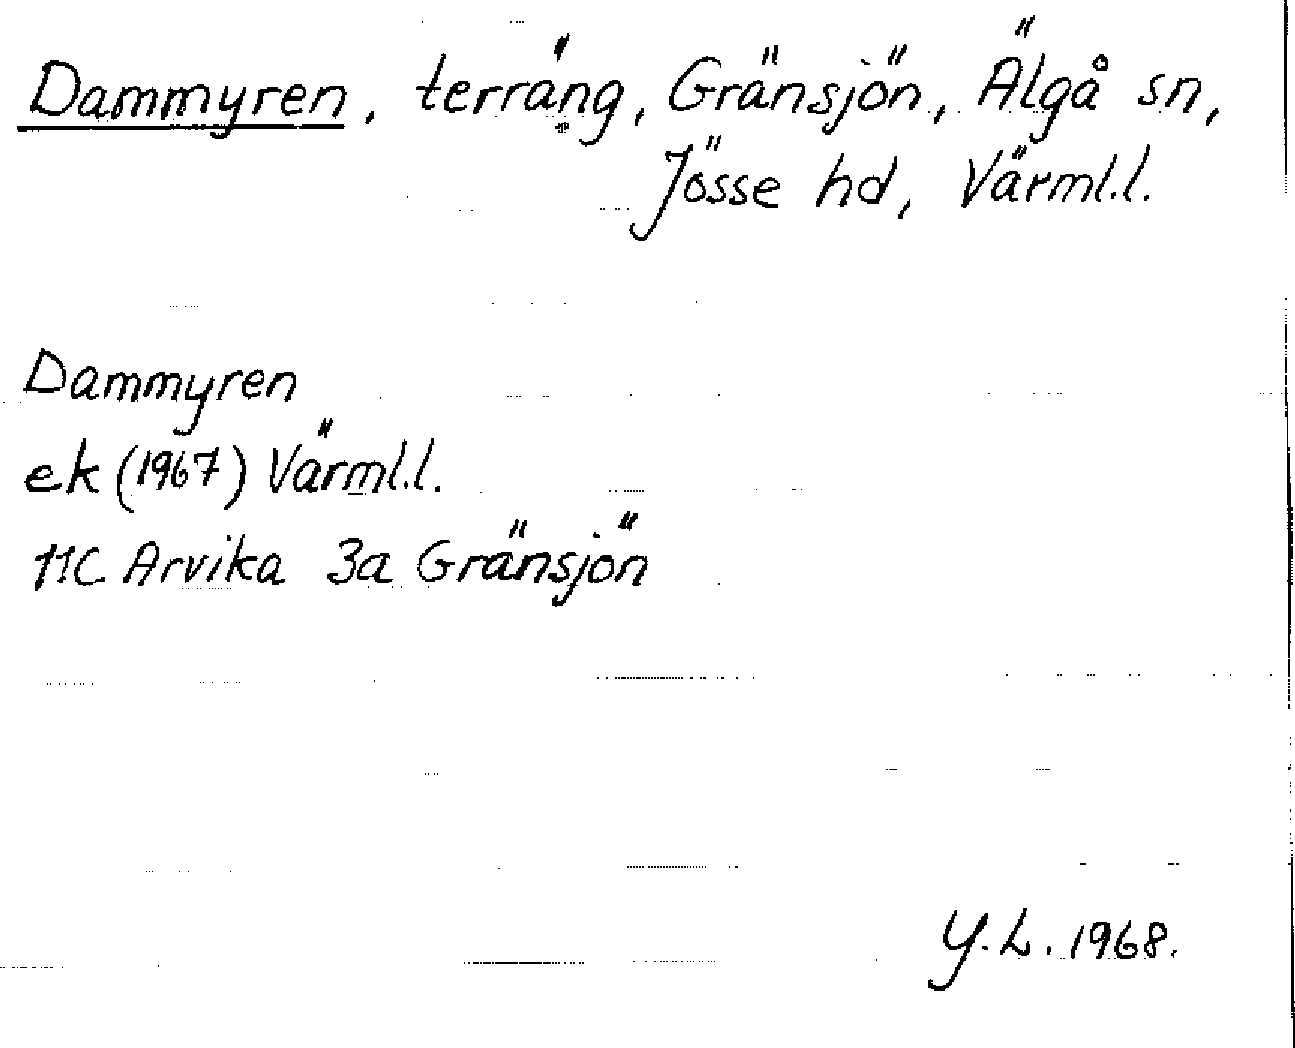 Dammyren, terräng, Gränsjön, Älgå sn,
Jösse hd, Värml.l.
Dammyren
ek (1967) Värml.l.
11C Arvika 3a Gränsjön
Y.L. 1968.